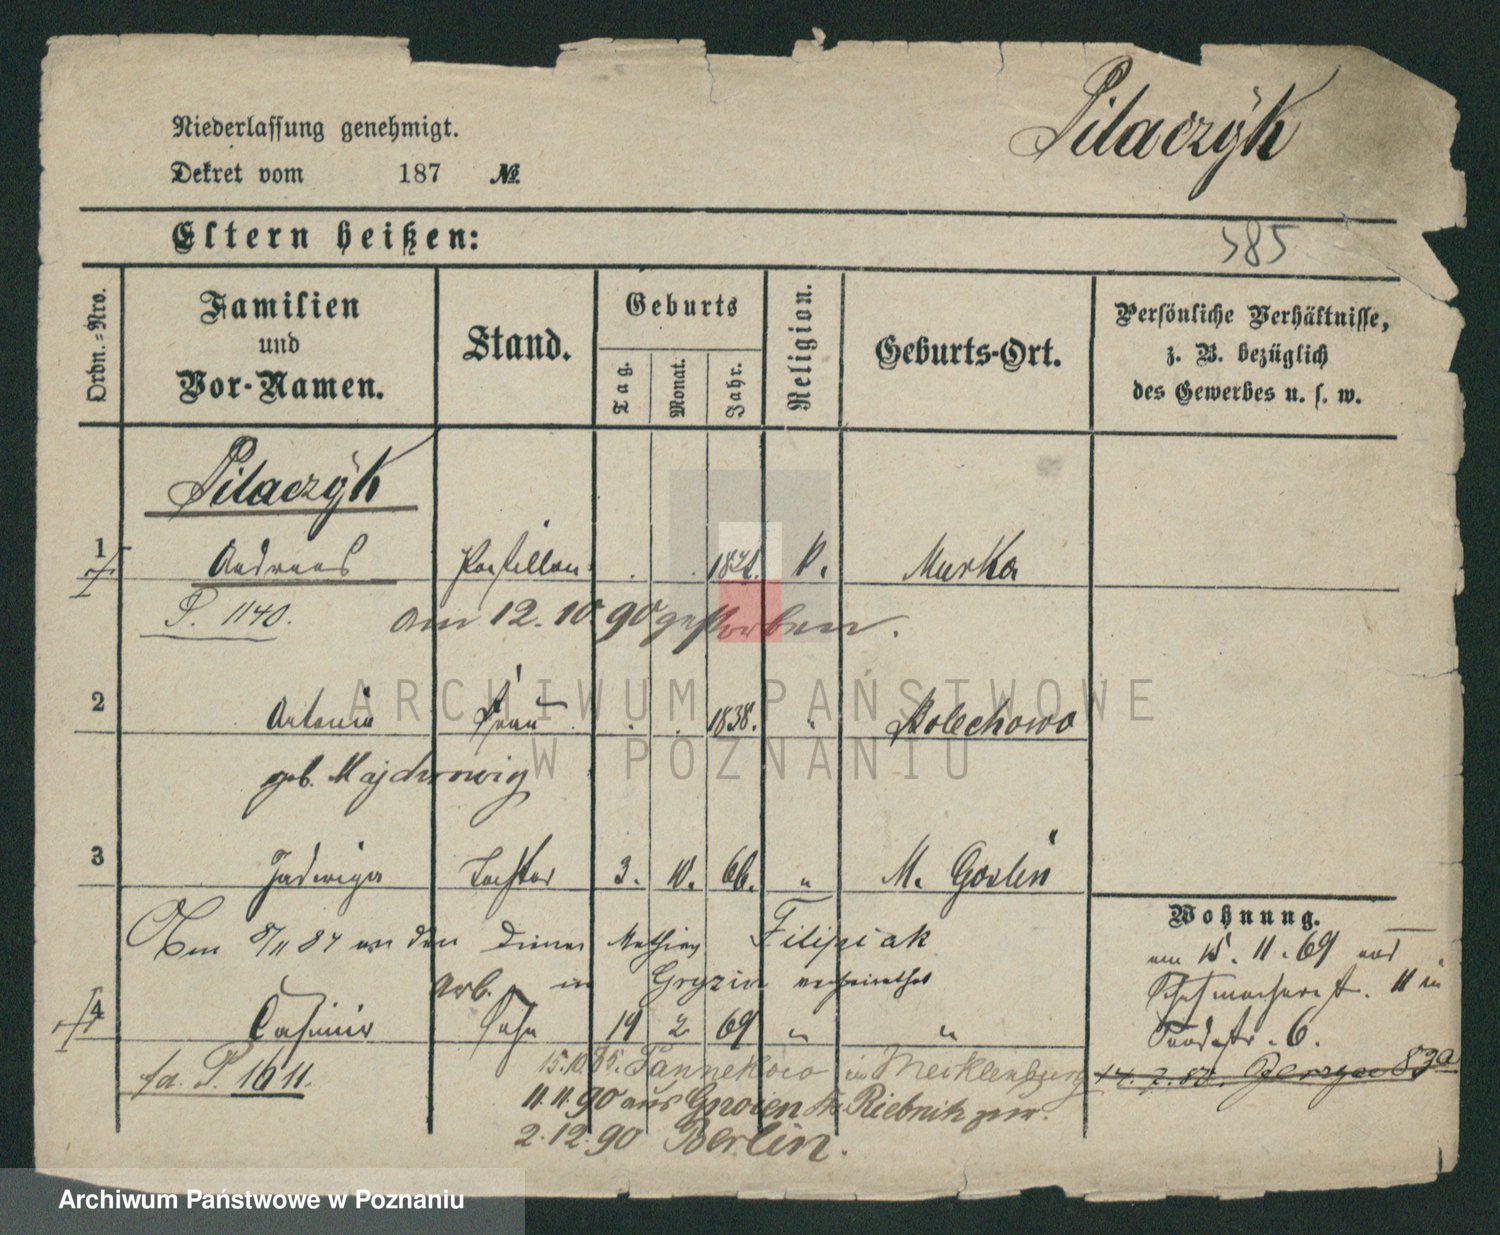 Pilaczÿk
Niederlassung genehmigt.
Dekret vom 187 №
585
Eltern heißen:
Ordn.-Nro.
Familien
und
Vor-Namen.
Stand.
Geburts
Tag.
Monat.
Jahr.
Religion.
Geburts-Ort.
Persönliche Verhältnisse,
z. B. bezüglich
des Gewerbes u. s. w.
Pilaczÿk
1 Andreas Postillon 1821. k. Murka
P. 1140. am 12.10.90 gestorben.
2 Antonia Frau 1838. " Bolechowo
geb.
3 Jadwiga Tochter 3. 10. 66. " M. Goslin
Am 8/11 84 an den Diener Mathias Filipiak
Arb. in Gryzin verheirathet
4 Casimir Sohn 19 2 69 " "
fa. P. 1611.
15.10.85. in Mecklenburg
11.11.90 aus Gnoien Kr. Ribnitz zur.
2.12.90 Berlin.
Wohnung.
am 15. 11. 69 aus
11 in
6.
14. 7. 83a
ARCHIWUM PAŃSTWOWE
W POZNANIU
Archiwum Państwowe w Poznaniu